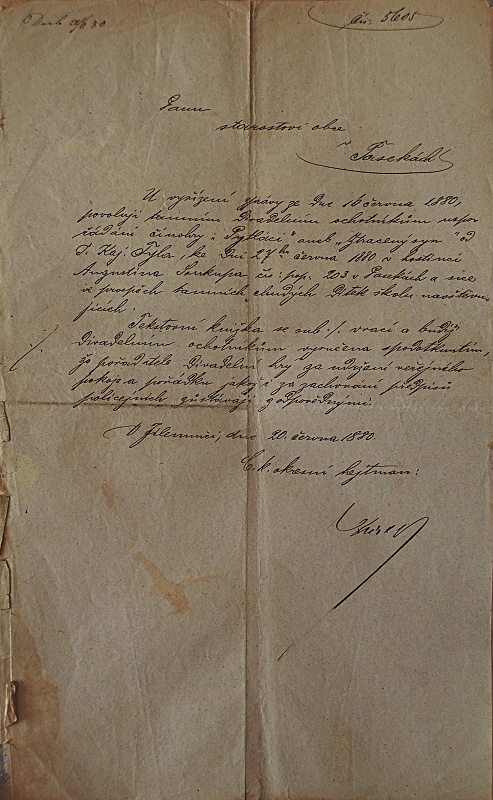 čís: 5605
Panu
starostovi obce
v Pasekách
U vyřízení zprávy ze dne 16 června 1880,
povoluji tamním divadelním ochotníkům uspo-
řádání činohry: „Pytláci" aneb „Ztracený syn" od
J. Kaj. Tyla, ke dni 27ho června 1880 v hostinci
Augustina Soukupa čís. pop. 203 v Pasekách a sice
ve prospěch tamních chudých dítek školu navštěvu-
jících.
Tekstovní knížka se sub ·/. vrací a budiž
divadelním ochotníkům vyrčena s podotknutím,
že pořadatelé divadelní hry za udržení veřejného
pokoje a pořádku jakož i za zachování předpisů
policejních zůstávají zodpovědnými.
V Jilemnici, dne 20. června 1880.
C. k. okresní hejtman: